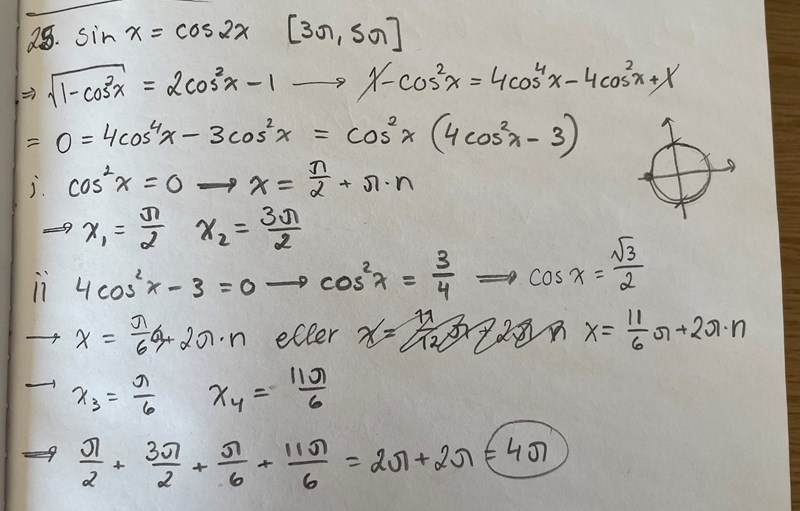 25. sin x = cos2x [3π, 5π]
⇒ √(1-cos²x) = 2cos²x - 1 → 1-cos²x = 4cos⁴x - 4cos²x + 1
= 0 = 4cos⁴x - 3cos²x = cos²x (4cos²x - 3)
i. cos²x = 0 → x = π/2 + π·n
⇒ x₁ = π/2 x₂ = 3π/2
ii 4cos²x - 3 = 0 → cos²x = 3/4 ⇒ cos x = √3/2
→ x = π/6 + 2π·n eller x = 11/6 π + 2π·n
→ x₃ = π/6 x₄ = 11π/6
⇒ π/2 + 3π/2 + π/6 + 11π/6 = 2π + 2π = 4π